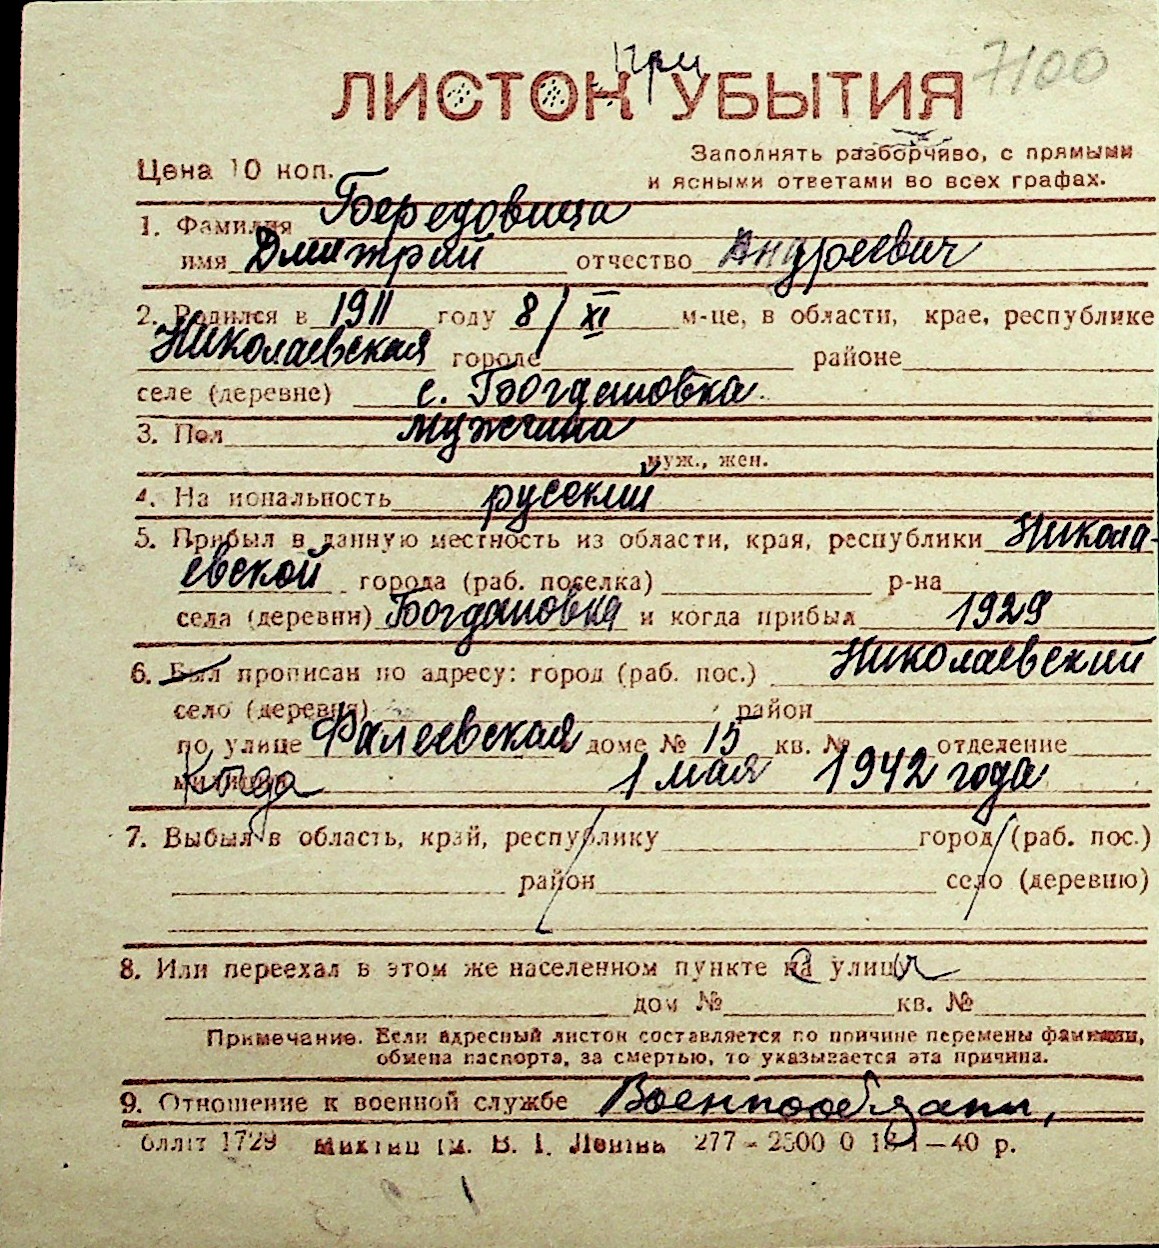 при
ЛИСТОК УБЫТИЯ 7100
Цена 10 коп.
Заполнять разборчиво, с прямыми
и ясными ответами во всех графах.
1. Фамилия Бередовица
имя Дмитрий отчество Андреевич
2. Родился в 1911 году 8/XI м-це, в области, крае, республике
Николаевская городе районе
селе (деревне) с. Богдановка
3. Пол мужчина
муж., жен.
4. Национальность русский
5. Прибыл в данную местность из области, края, республики Никола-
евской города (раб. поселка) р-на
села (деревни) Богдановка и когда прибыл 1929
6. Был прописан по адресу: город (раб. пос.) Николаевский
село (деревня) район
по улице Фалеевская доме № 15 кв. № отделение
милиции Когда 1 мая 1942 года
7. Выбыл в область, край, республику город (раб. пос.)
район село (деревню)
8. Или переехал в этом же населенном пункте на улицу
дом № кв. №
Примечание. Если адресный листок составляется по причине перемены фамилии,
обмена паспорта, за смертью, то указывается эта причина.
9. Отношение к военной службе Военнообязан,
1729 В. І. Леніна 277 - 2500 0 -40 р.